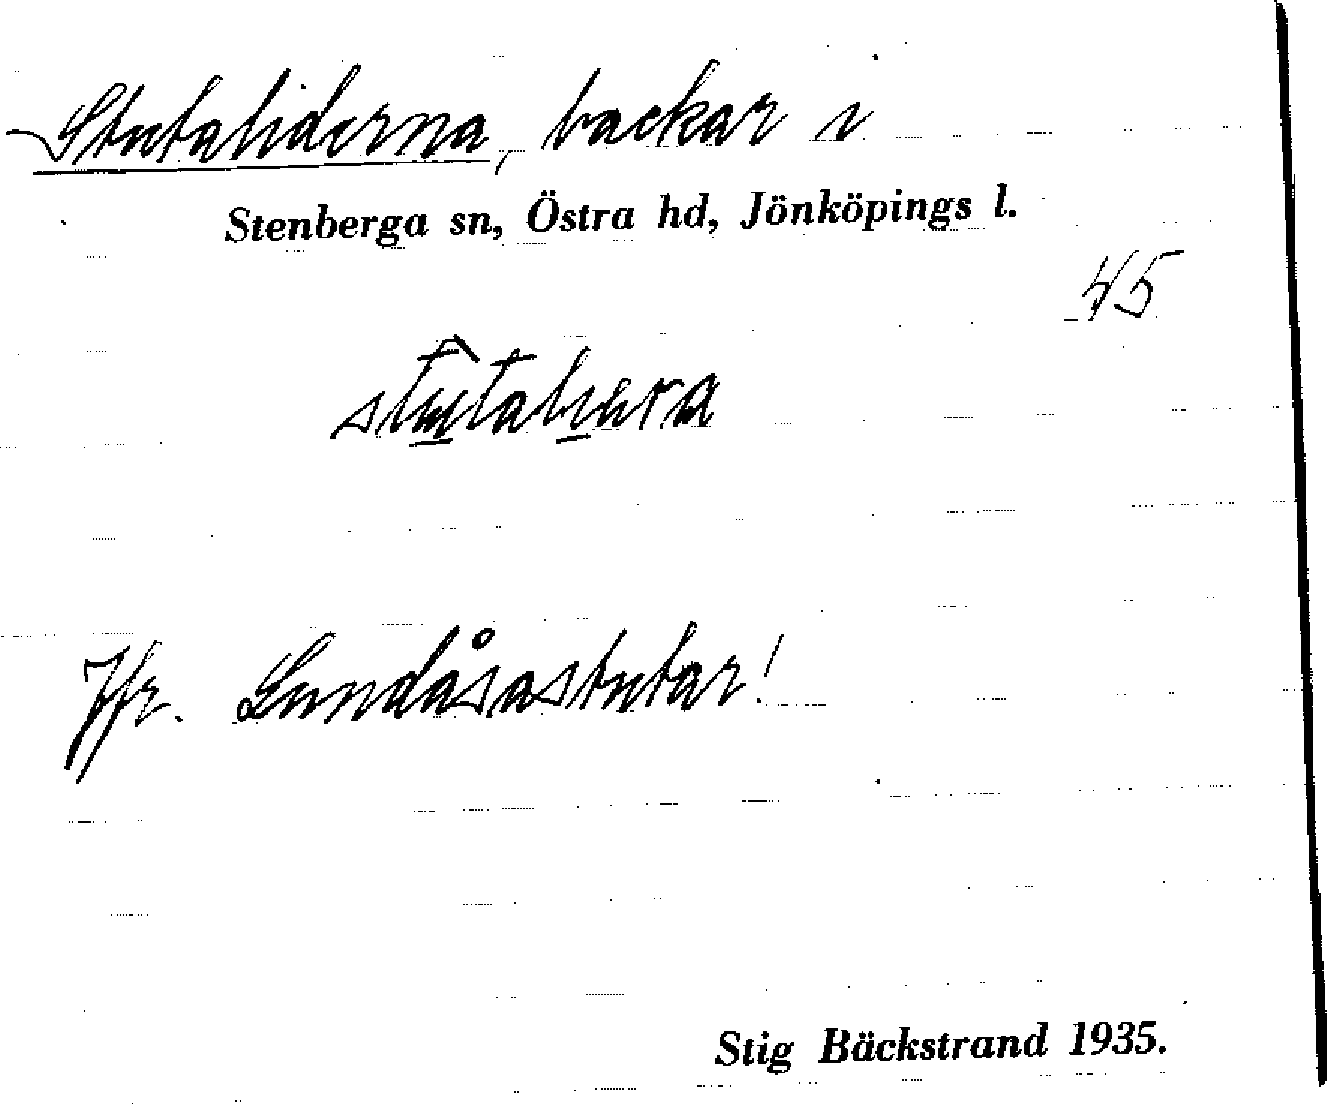 Stutaliderna, backar i
Stenberga sn, Östra hd, Jönköpings l.
45
Jfr. Lundåsastutar!
Stig Bäckstrand 1935.